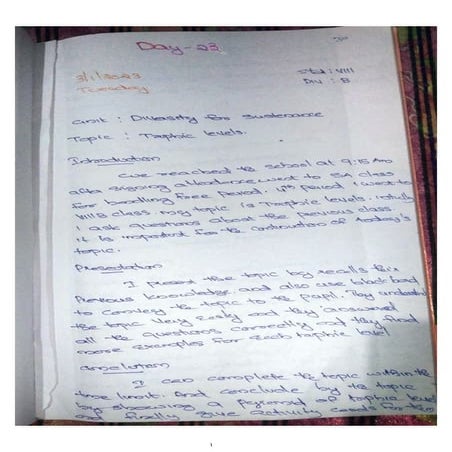 Day-23
3/1/2023
Tuesday
Std : VIII
Div : B
Unit : Diversity for Sustenance
Topic : Trophic levels.
Introduction
We reached the school at 9:15 Am
after signing attendance, went to 5A class
for handling free period. 4th period I went to
VIII B class. my topic is Trophic levels.
I ask questions about the previous class.
it is important for the continuation of today's
topic.
Presentation
I present the topic by recalls this
Previous knowledge. and also use black board
to convey the topic to the pupil. They
the topic very easily and they answered
all the questions correctly and they
more examples for each trophic level
I can complete the topic within the
time limit. And conclude by the topic
by showing a Pyramid of trophic level
and finally give activity cards for